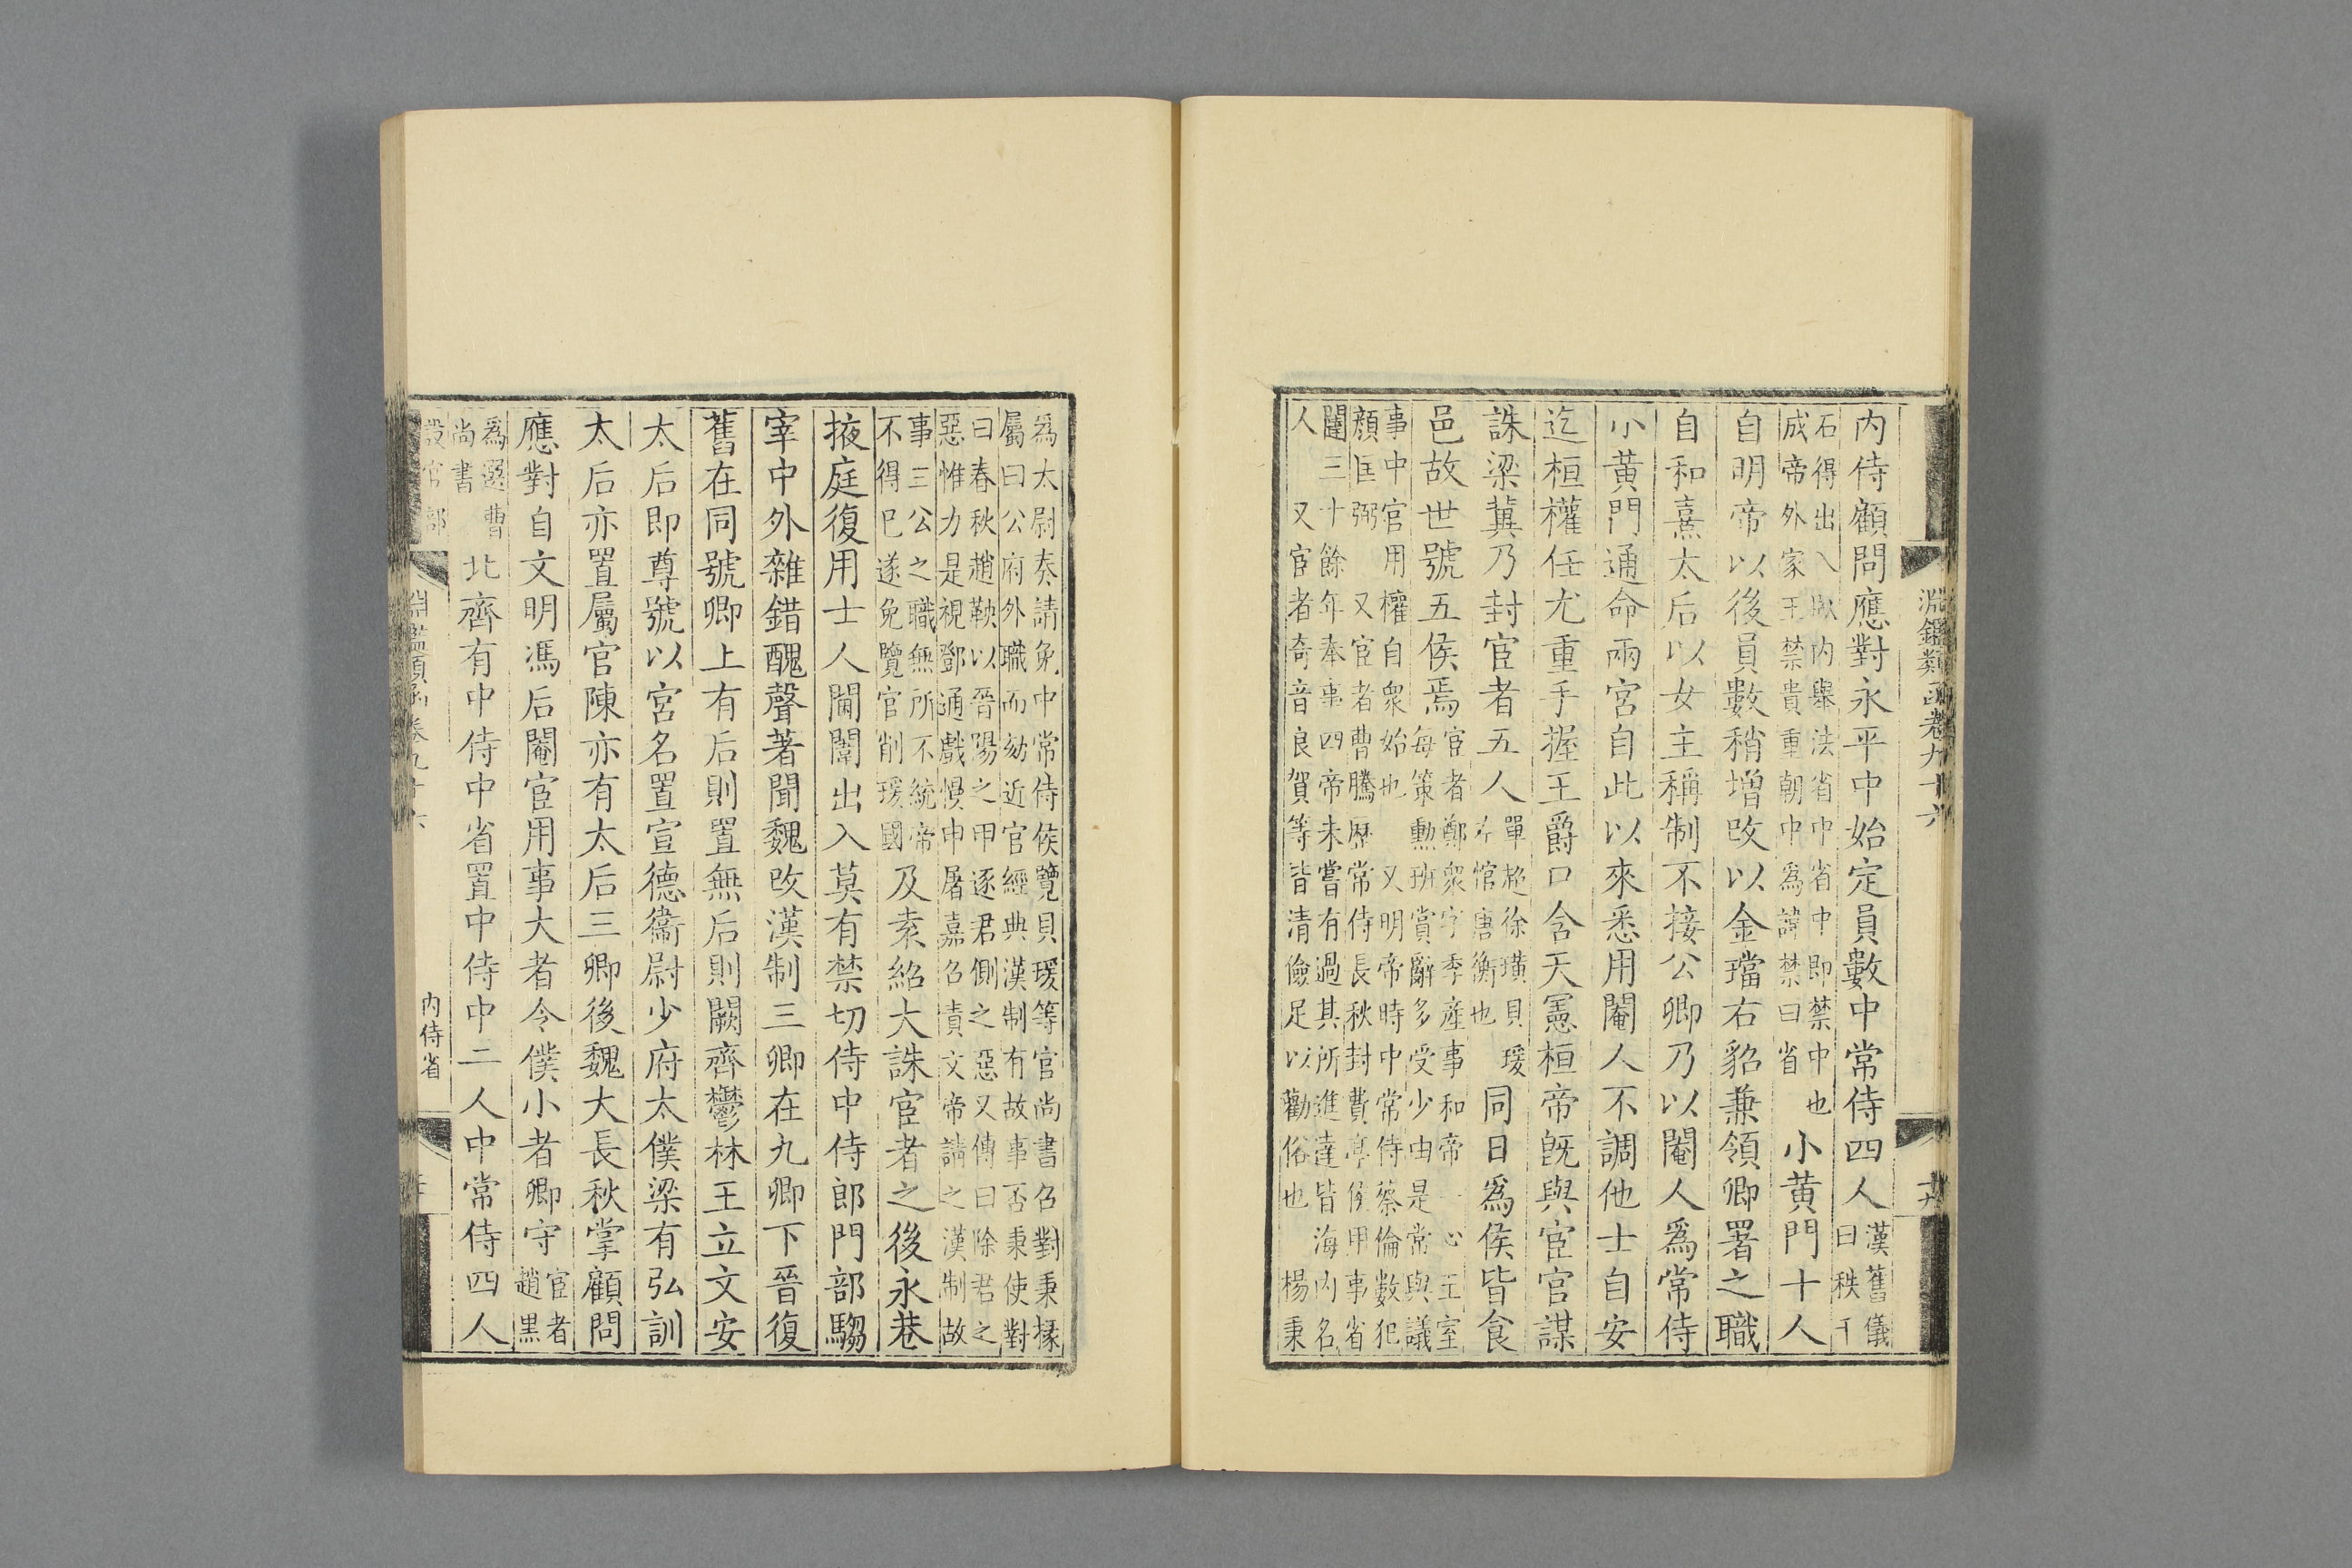 淵鑑類函卷九十六
内侍顧問應對永平中始定員數中常侍四人漢舊儀
曰秩千
石得出入臥内舉法省中省中即禁中也
成帝外家王禁貴重朝中為諱禁曰省
小黄門十人
自明帝以後員數稍增改以金璫右貂兼領卿署之職
自和熹太后以女主稱制不接公卿乃以閹人爲常侍
小黄門通命兩宮自此以來悉用閹人不調他士自安
迄桓權任尤重手握王爵口含天憲桓帝旣與宦官謀
誅梁冀乃封宦者五人
單超徐璜貝瑗
左悺唐衡也
同日爲侯皆食
邑故世號五侯焉
宦者鄭衆字季産事和帝一心王室
每策勲班賞辭多受少由是常與議
事中官用權自衆始也 又明帝時中常侍蔡倫數犯
顔匡弼 又宦者曹騰歴常侍長秋封費亭侯用事省
闥三十餘年奉事四帝未嘗有過其所進達皆海内名
人 又宦者奇音良賀等皆清儉足以勸俗也 楊秉
為太尉奏請免中常侍侯覽貝瑗等官尚書召對秉掾
屬曰公府外職而劾近官經典漢制有故事否秉使對
曰春秋趙鞅以晉陽之甲逐君側之惡又傳曰除君之
惡惟力是視鄧通戲慢申屠嘉召責文帝請之漢制故
事三公之職無所不統帝
不得已遂免覽官削瑗國
及袁紹大誅宦者之後永巷
掖庭復用士人閫闈出入莫有禁切侍中侍郎門部騶
宰中外雜錯醜聲著聞魏改漢制三卿在九卿下晉復
舊在同號卿上有后則置無后則闕齊鬱林王立文安
太后即尊號以宮名置宣德衞尉少府太僕梁有弘訓
太后亦置屬官陳亦有太后三卿後魏大長秋掌顧問
應對自文明馮后閹宦用事大者令僕小者卿守
宦者
趙黑
為選曹
尚書
北齊有中侍中省置中侍中二人中常侍四人
設官部
淵鑑類函卷九十六
内侍省